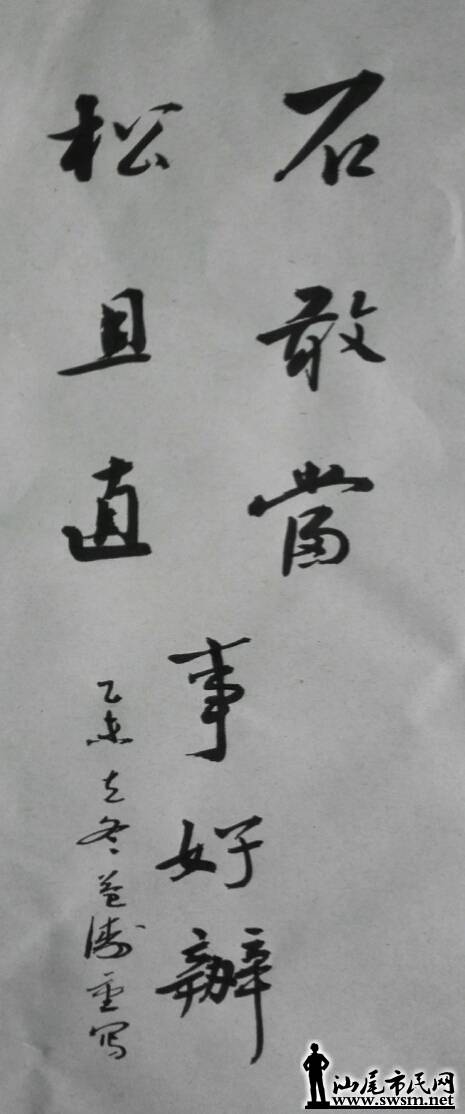 石敢當
松且直
事好辦
乙未立冬益濤重写
汕尾市民网
www.swsm.net